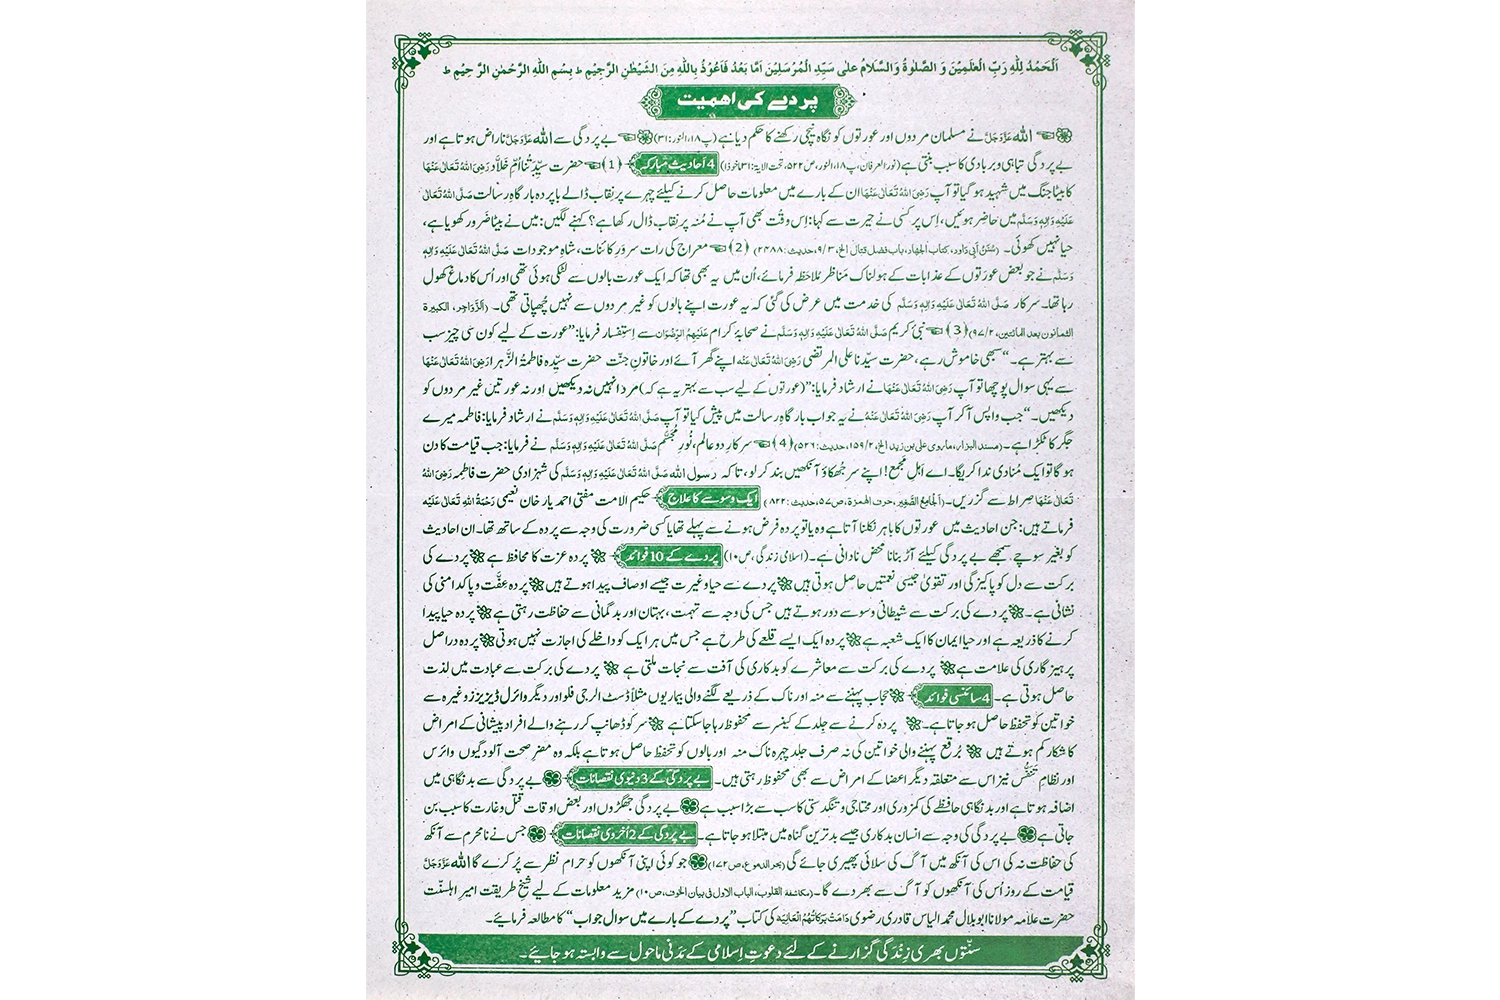 اَلْحَمْدُ لِلّٰهِ رَبِّ الْعٰلَمِيْنَ وَ الصَّلٰوةُ وَالسَّلَامُ عَلٰى سَيِّدِ الْمُرْسَلِيْنَ اَمَّا بَعْدُ فَاَعُوْذُ بِاللّٰهِ مِنَ الشَّيْطٰنِ الرَّجِيْمِ ط بِسْمِ اللّٰهِ الرَّحْمٰنِ الرَّحِيْمِ ط
پردے کی اهمیت
اللہ عَزَّوَجَلَّ نے مسلمان مردوں اور عورتوں کو نگاہ نیچی رکھنے کا حکم دیا ہے (پ۱۸، النور:۳۱) بے پردگی سے اللہ عَزَّوَجَلَّ ناراض ہوتا ہے اور
بے پردگی تباہی و بربادی کا سبب بنتی ہے (نور العرفان، پ۱۸، النور، ص۵۲۲، تحت الایۃ:۳۱ماخوذا) 4 اَحادیثِ مبارکہ (1) حضرت سیِّدَتُنا اُمِّ خَلَّاد رَضِیَ اللہُ تَعَالٰی عَنْهَا
کا بیٹا جنگ میں شہید ہو گیا تو آپ رَضِیَ اللہُ تَعَالٰی عَنْهَا ان کے بارے میں معلومات حاصل کرنے کیلئے چہرے پر نقاب ڈالے باپردہ بارگاہِ رسالت صَلَّی اللہُ تَعَالٰی
عَلَیْهِ وَاٰلِهٖ وَسَلَّم میں حاضر ہوئیں، اِس پر کسی نے حیرت سے کہا: اِس وقت بھی آپ نے مُنہ پر نقاب ڈال رکھا ہے؟ کہنے لگیں: میں نے بیٹا ضَرور کھویا ہے،
حیا نہیں کھوئی۔ (سُنَنُ اَبِی دَاود، کتاب الجهاد، باب فضل قتال الخ، ۳/۹، حدیث:۲۴۸۸) (2) معراج کی رات سرورِ کائنات، شاہِ موجودات صَلَّی اللہُ تَعَالٰی عَلَیْهِ وَاٰلِهٖ
وَسَلَّم نے جو بعض عورتوں کے عذابات کے ہولناک مَناظر مُلاحَظہ فرمائے، اُن میں یہ بھی تھا کہ ایک عورت بالوں سے لٹکی ہوئی تھی اور اُس کا دماغ کھول
رہا تھا۔ سرکار صَلَّی اللہُ تَعَالٰی عَلَیْهِ وَاٰلِهٖ وَسَلَّم کی خدمت میں عرض کی گئی کہ یہ عورت اپنے بالوں کو غیر مردوں سے نہیں چُھپاتی تھی۔ (اَلزَّوَاجِر، الکبیرة
الثمانون بعد المائتین، ۲/۹۷) (3) نبیِّ کریم صَلَّی اللہُ تَعَالٰی عَلَیْهِ وَاٰلِهٖ وَسَلَّم نے صحابۂ کرام عَلَیْهِمُ الرِّضْوَان سے اِستِفسار فرمایا: ”عورت کے لیے کون سی چیز سب
سے بہتر ہے۔“ سبھی خاموش رہے، حضرت سیّدنا علی المرتضی رَضِیَ اللہُ تَعَالٰی عَنْه اپنے گھر آئے اور خاتونِ جنّت حضرت سیّدہ فاطمۃُ الزَّہرا رَضِیَ اللہُ تَعَالٰی عَنْهَا
سے یہی سوال پوچھا تو آپ رَضِیَ اللہُ تَعَالٰی عَنْهَا نے ارشاد فرمایا: ”(عورتوں کے لیے سب سے بہتر یہ ہے کہ) مرد انہیں نہ دیکھیں اور نہ عورتیں غیر مردوں کو
دیکھیں۔“ جب واپس آ کر آپ رَضِیَ اللہُ تَعَالٰی عَنْهُ نے یہ جواب بارگاہِ رسالت میں پیش کیا تو آپ صَلَّی اللہُ تَعَالٰی عَلَیْهِ وَاٰلِهٖ وَسَلَّم نے ارشاد فرمایا: فاطمہ میرے
جگر کا ٹکڑا ہے۔ (مسند البزار، ماروی علی بن زید الخ، ۲/۱۵۹، حدیث:۵۲۶) (4) سرکارِ دو عالم، نُورِ مُجَسَّم صَلَّی اللہُ تَعَالٰی عَلَیْهِ وَاٰلِهٖ وَسَلَّم نے فرمایا: جب قیامت کا دن
ہو گا تو ایک مُنادی ندا کریگا۔ اے اہلِ مجمع! اپنے سر جُھکاؤ آنکھیں بند کر لو، تاکہ رسول اللہ صَلَّی اللہُ تَعَالٰی عَلَیْهِ وَاٰلِهٖ وَسَلَّم کی شہزادی حضرت فاطمہ رَضِیَ اللہُ
تَعَالٰی عَنْهَا صِراط سے گزریں۔ (اَلجامِعُ الصَّغِیر، حرف الهمزة، ص۵۷، حدیث:۸۲۲) ایک وسوسے کا علاج حکیم الامت مفتی احمد یار خان نعیمی رَحْمَةُ اللہِ تَعَالٰی عَلَیْه
فرماتے ہیں: جن احادیث میں عورتوں کا باہر نکلنا آتا ہے وہ یا تو پردہ فرض ہونے سے پہلے تھا یا کسی ضرورت کی وجہ سے پردہ کے ساتھ تھا۔ ان احادیث
کو بغیر سوچے سمجھے بے پردگی کیلئے آڑ بنانا محض نادانی ہے۔ (اسلامی زندگی، ص۱۰) پردے کے 10 فوائد پردہ عزت کا محافظ ہے پردے کی
برکت سے دل کو پاکیزگی اور تقویٰ جیسی نعمتیں حاصل ہوتی ہیں پردے سے حیا و غیرت جیسے اوصاف پیدا ہوتے ہیں پردہ عِفّت و پاکدامنی کی
نشانی ہے۔ پردے کی برکت سے شیطانی وسوسے دور ہوتے ہیں جس کی وجہ سے تہمت، بہتان اور بدگمانی سے حفاظت رہتی ہے پردہ حیا پیدا
کرنے کا ذریعہ ہے اور حیا ایمان کا ایک شعبہ ہے پردہ ایک ایسے قلعے کی طرح ہے جس میں ہر ایک کو داخلے کی اجازت نہیں ہوتی پردہ دراصل
پرہیزگاری کی علامت ہے پردے کی برکت سے معاشرے کو بدکاری کی آفت سے نجات ملتی ہے پردے کی برکت سے عبادت میں لذت
حاصل ہوتی ہے۔ 4 سائنسی فوائد حجاب پہننے سے منہ اور ناک کے ذریعے لگنے والی بیماریوں مثلاً ڈسٹ الرجی فلو اور دیگر وائرل ڈیزیز وغیرہ سے
خواتین کو تحفظ حاصل ہو جاتا ہے۔ پردہ کرنے سے جِلد کے کینسر سے محفوظ رہا جا سکتا ہے سر کو ڈھانپ کر رہنے والے افراد پیشانی کے امراض
کا شکار کم ہوتے ہیں بُرقع پہننے والی خواتین کی نہ صرف جلد چہرہ ناک منہ اور بالوں کو تحفظ حاصل ہوتا ہے بلکہ وہ مضرِ صحت آلودگیوں وائرس
اور نظامِ تَنَفُّس نیز اس سے متعلقہ دیگر اعضا کے امراض سے بھی محفوظ رہتی ہیں۔ بے پردگی کے 3 دنیوی نقصانات بے پردگی سے بدنگاہی میں
اضافہ ہوتا ہے اور بدنگاہی حافظے کی کمزوری اور محتاجی و تنگدستی کا سب سے بڑا سبب ہے بے پردگی جھگڑوں اور بعض اوقات قتل و غارت کا سبب بن
جاتی ہے بے پردگی کی وجہ سے انسان بدکاری جیسے بدترین گناہ میں مبتلا ہو جاتا ہے۔ بے پردگی کے 2 اُخروی نقصانات جس نے نامحرم سے آنکھ
کی حفاظت نہ کی اس کی آنکھ میں آگ کی سلائی پھیری جائے گی (بحر الدموع، ص۱۷۲) جو کوئی اپنی آنکھوں کو حرام نظر سے پُر کرے گا اللہ عَزَّوَجَلَّ
قیامت کے روز اُس کی آنکھوں کو آگ سے بھر دے گا۔ (مکاشفة القلوب، الباب الاول فی بیان الخوف، ص۱۰) مزید معلومات کے لیے شیخِ طریقت امیرِ اہلسنّت
حضرت علامہ مولانا ابوبلال محمد الیاس قادری رضوی دَامَتْ بَرَکَاتُهُمُ الْعَالِیَه کی کتاب ”پردے کے بارے میں سوال جواب“ کا مطالعہ فرمائیے۔
سنّتوں بھری زِنْدَگی گزارنے کے لئے دعوتِ اسلامی کے مَدَنی ماحول سے وابستہ ہو جائیے۔